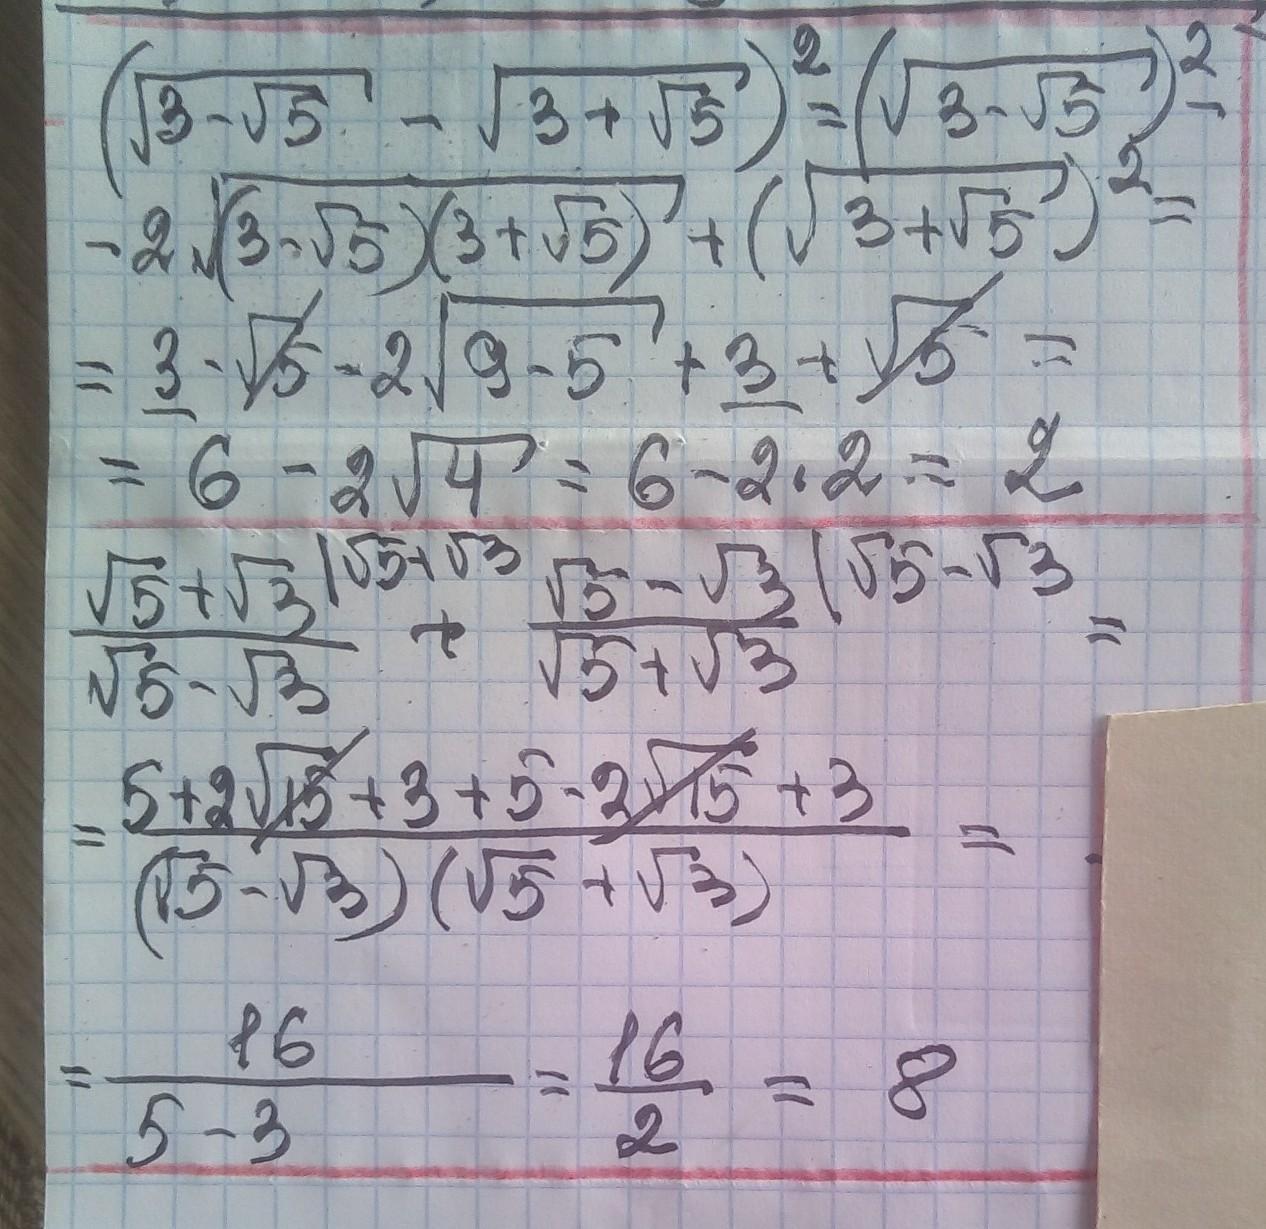 (√(3-√5) - √(3+√5))² = (√(3-√5))² -
-2√((3-√5)(3+√5)) + (√(3+√5))² =
= 3 - √5 - 2√(9-5) + 3 + √5 =
= 6 - 2√4 = 6 - 2·2 = 2
(√5+√3)/(√5-√3) |√5+√3 + (√5-√3)/(√5+√3) |√5-√3 =
= (5+2√15+3+5-2√15+3)/((√5-√3)(√5+√3)) =
= 16/(5-3) = 16/2 = 8